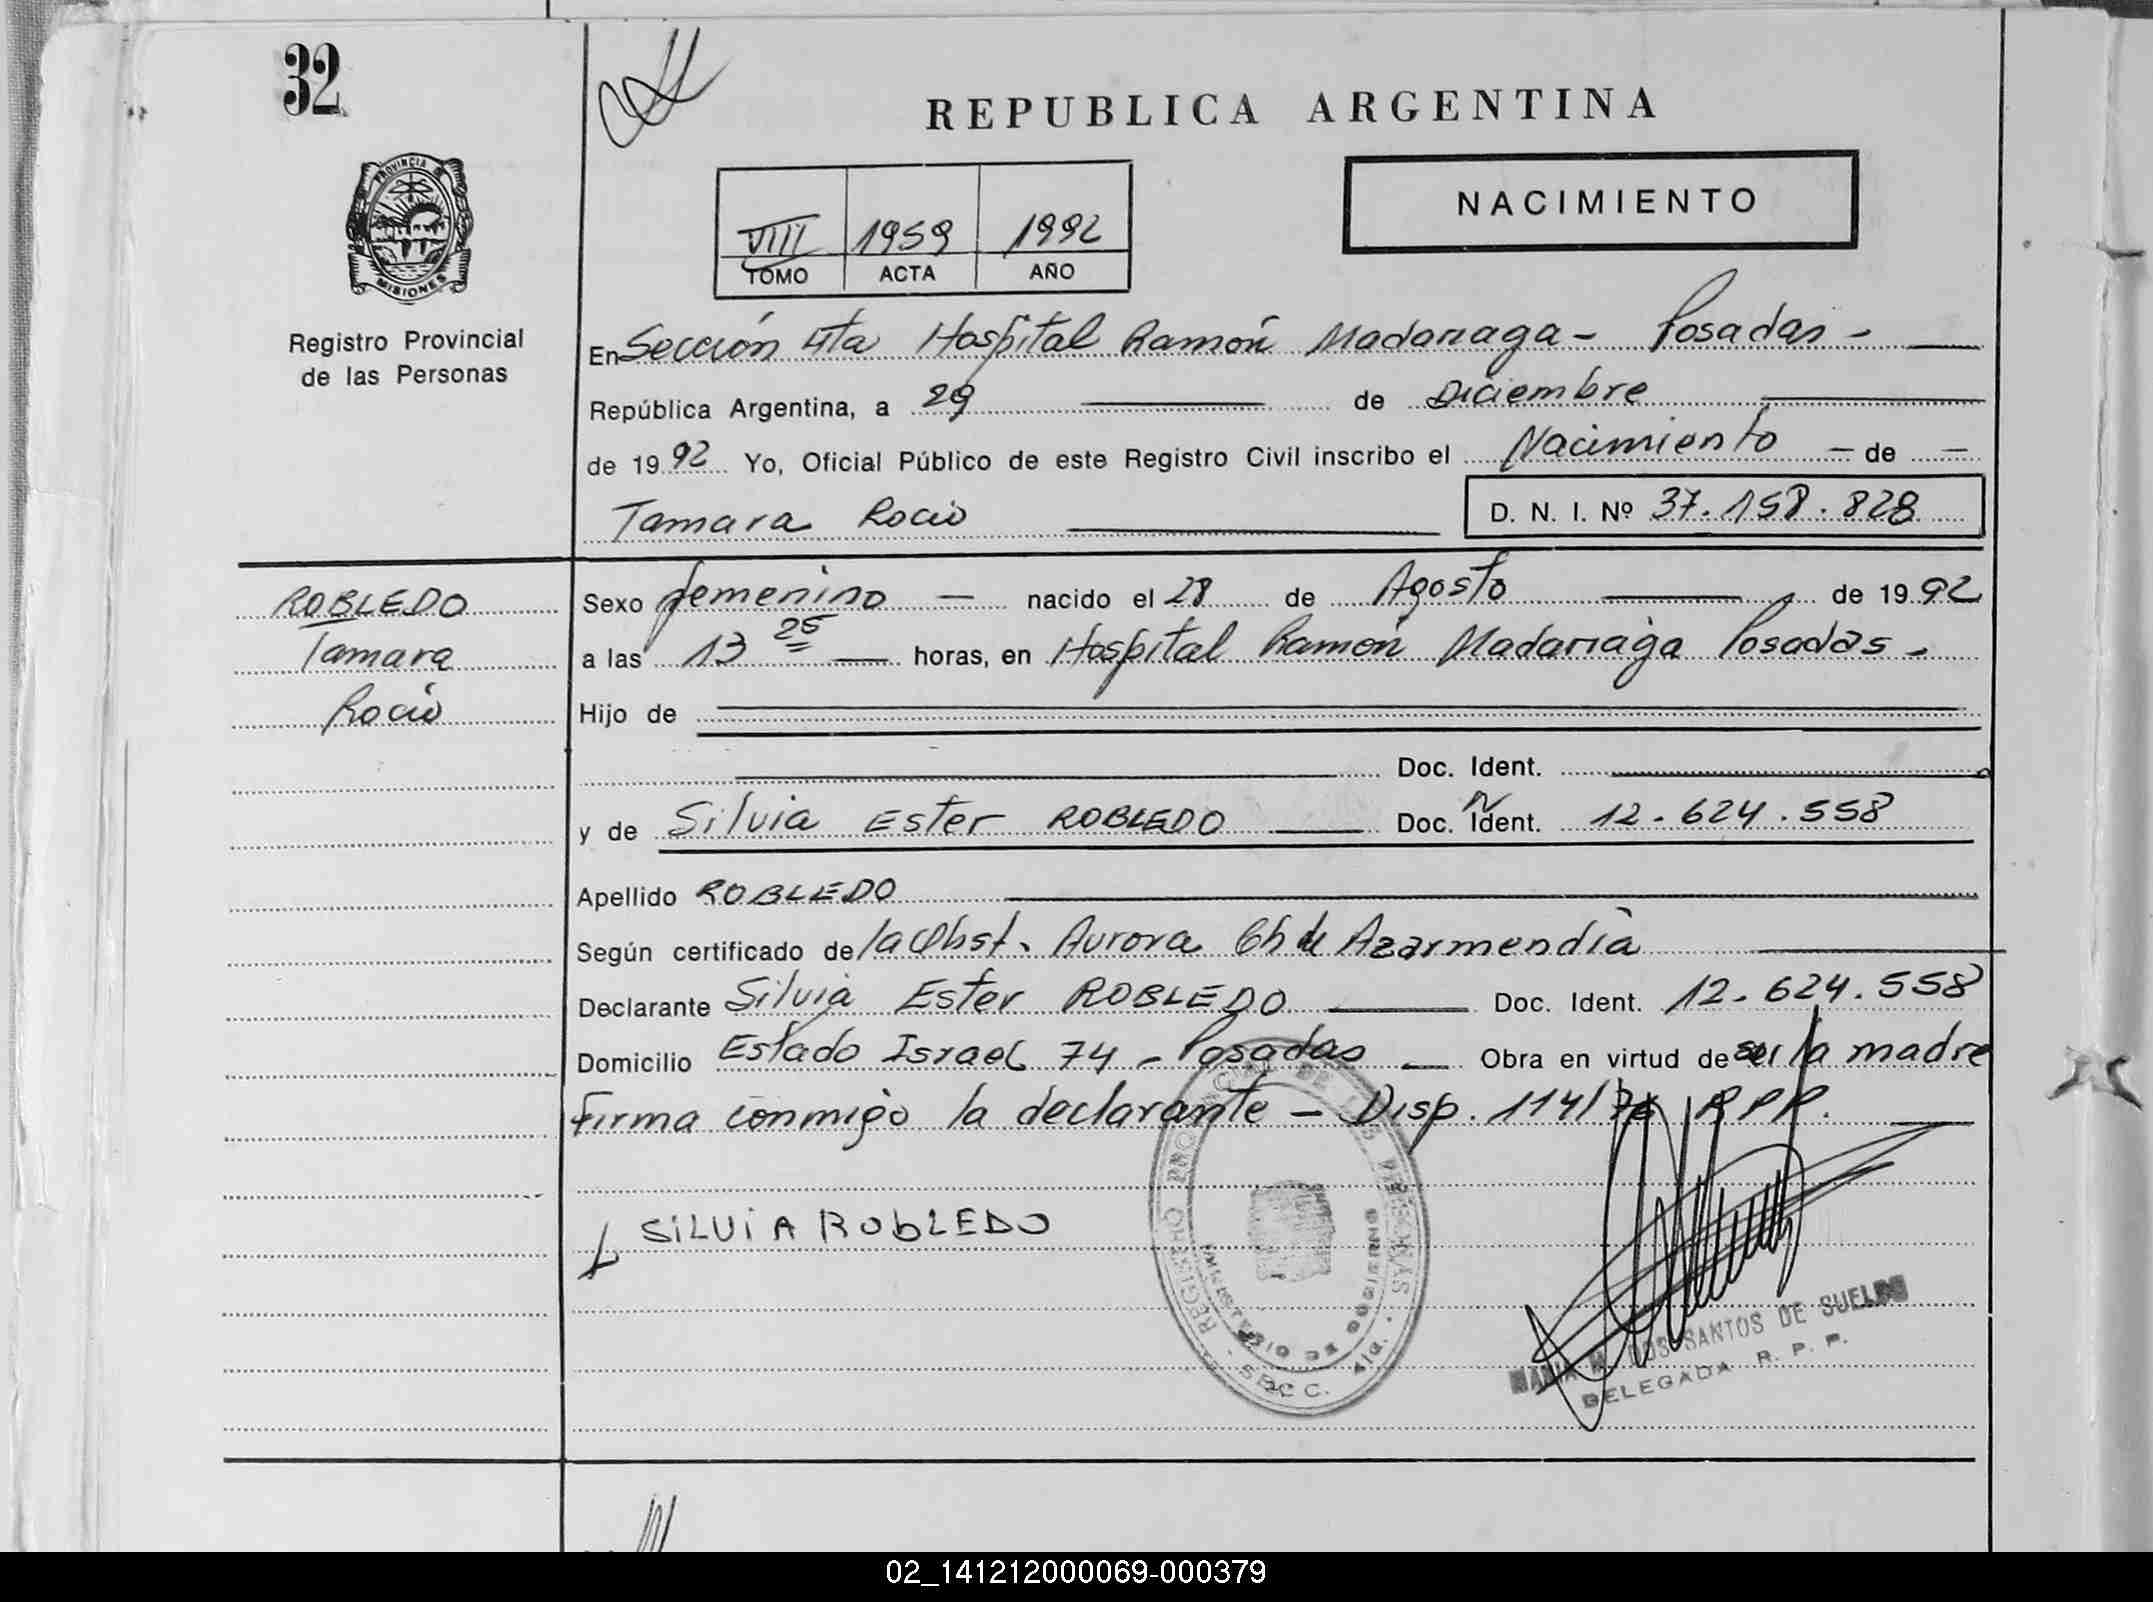 32
REPUBLICA ARGENTINA
PROVINCIA DE
MISIONES
Registro Provincial
de las Personas
NACIMIENTO
VIII 1959 1992
TOMO ACTA AÑO
En Sección 4ta Hospital Ramón Madariaga - Posadas -
República Argentina, a 29 de Diciembre
de 1992 Yo, Oficial Público de este Registro Civil inscribo el Nacimiento - de -
Tamara Rocio D. N. I. Nº 37.158.828
ROBLEDO
Tamara
Rocio
Sexo femenino - nacido el 28 de Agosto de 1992
a las 13 25 horas, en Hospital Ramón Madariaga Posadas -
Hijo de
Doc. Ident.
y de Silvia Ester ROBLEDO Doc. N Ident. 12.624.558
Apellido ROBLEDO
Según certificado de la Obst. Aurora Ch de Azarmendia
Declarante Silvia Ester ROBLEDO Doc. Ident. 12.624.558
Domicilio Estado Israel 74 - Posadas Obra en virtud de ser la madre
Firma conmigo la declarante - Disp. 114/ RPP.
SiLViA RObLEDO
REGISTRO PROVINCIAL DE LAS PERSONAS
MINISTERIO DE GOBIERNO
SECC. 4ta.
DOS SANTOS DE SUELDO
DELEGADA R. P. P.
02_141212000069-000379